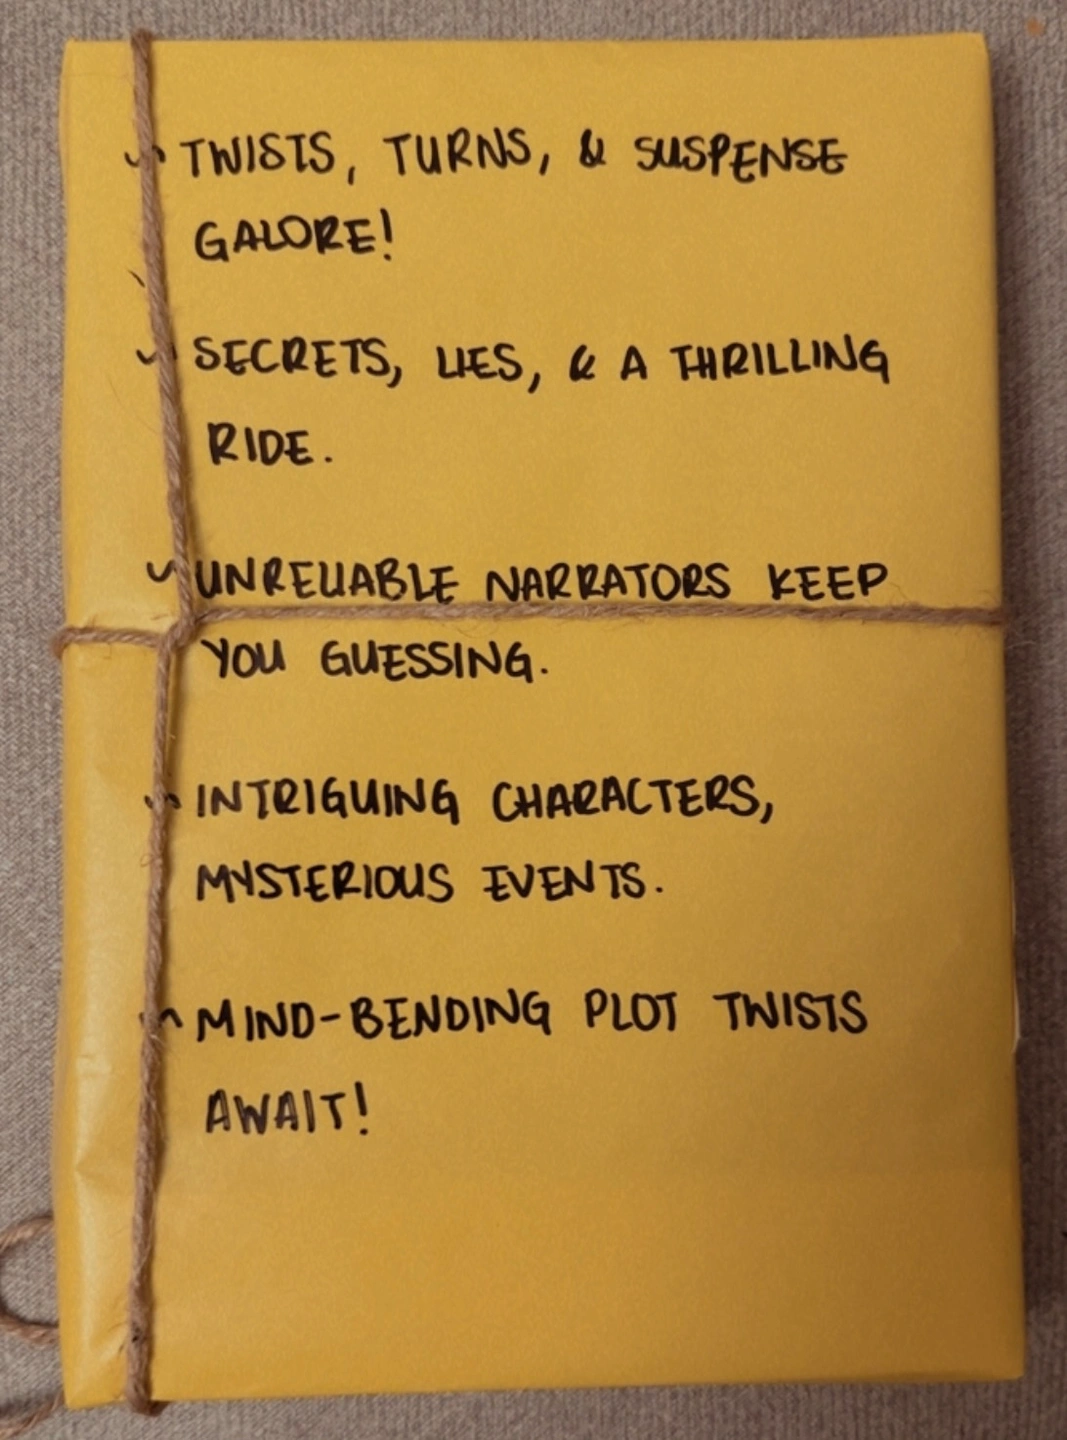 ~ TWISTS, TURNS, & SUSPENSE
GALORE!
~ SECRETS, LIES, & A THRILLING
RIDE.
~ UNRELIABLE NARRATORS KEEP
YOU GUESSING.
~ INTRIGUING CHARACTERS,
MYSTERIOUS EVENTS.
~ MIND-BENDING PLOT TWISTS
AWAIT!